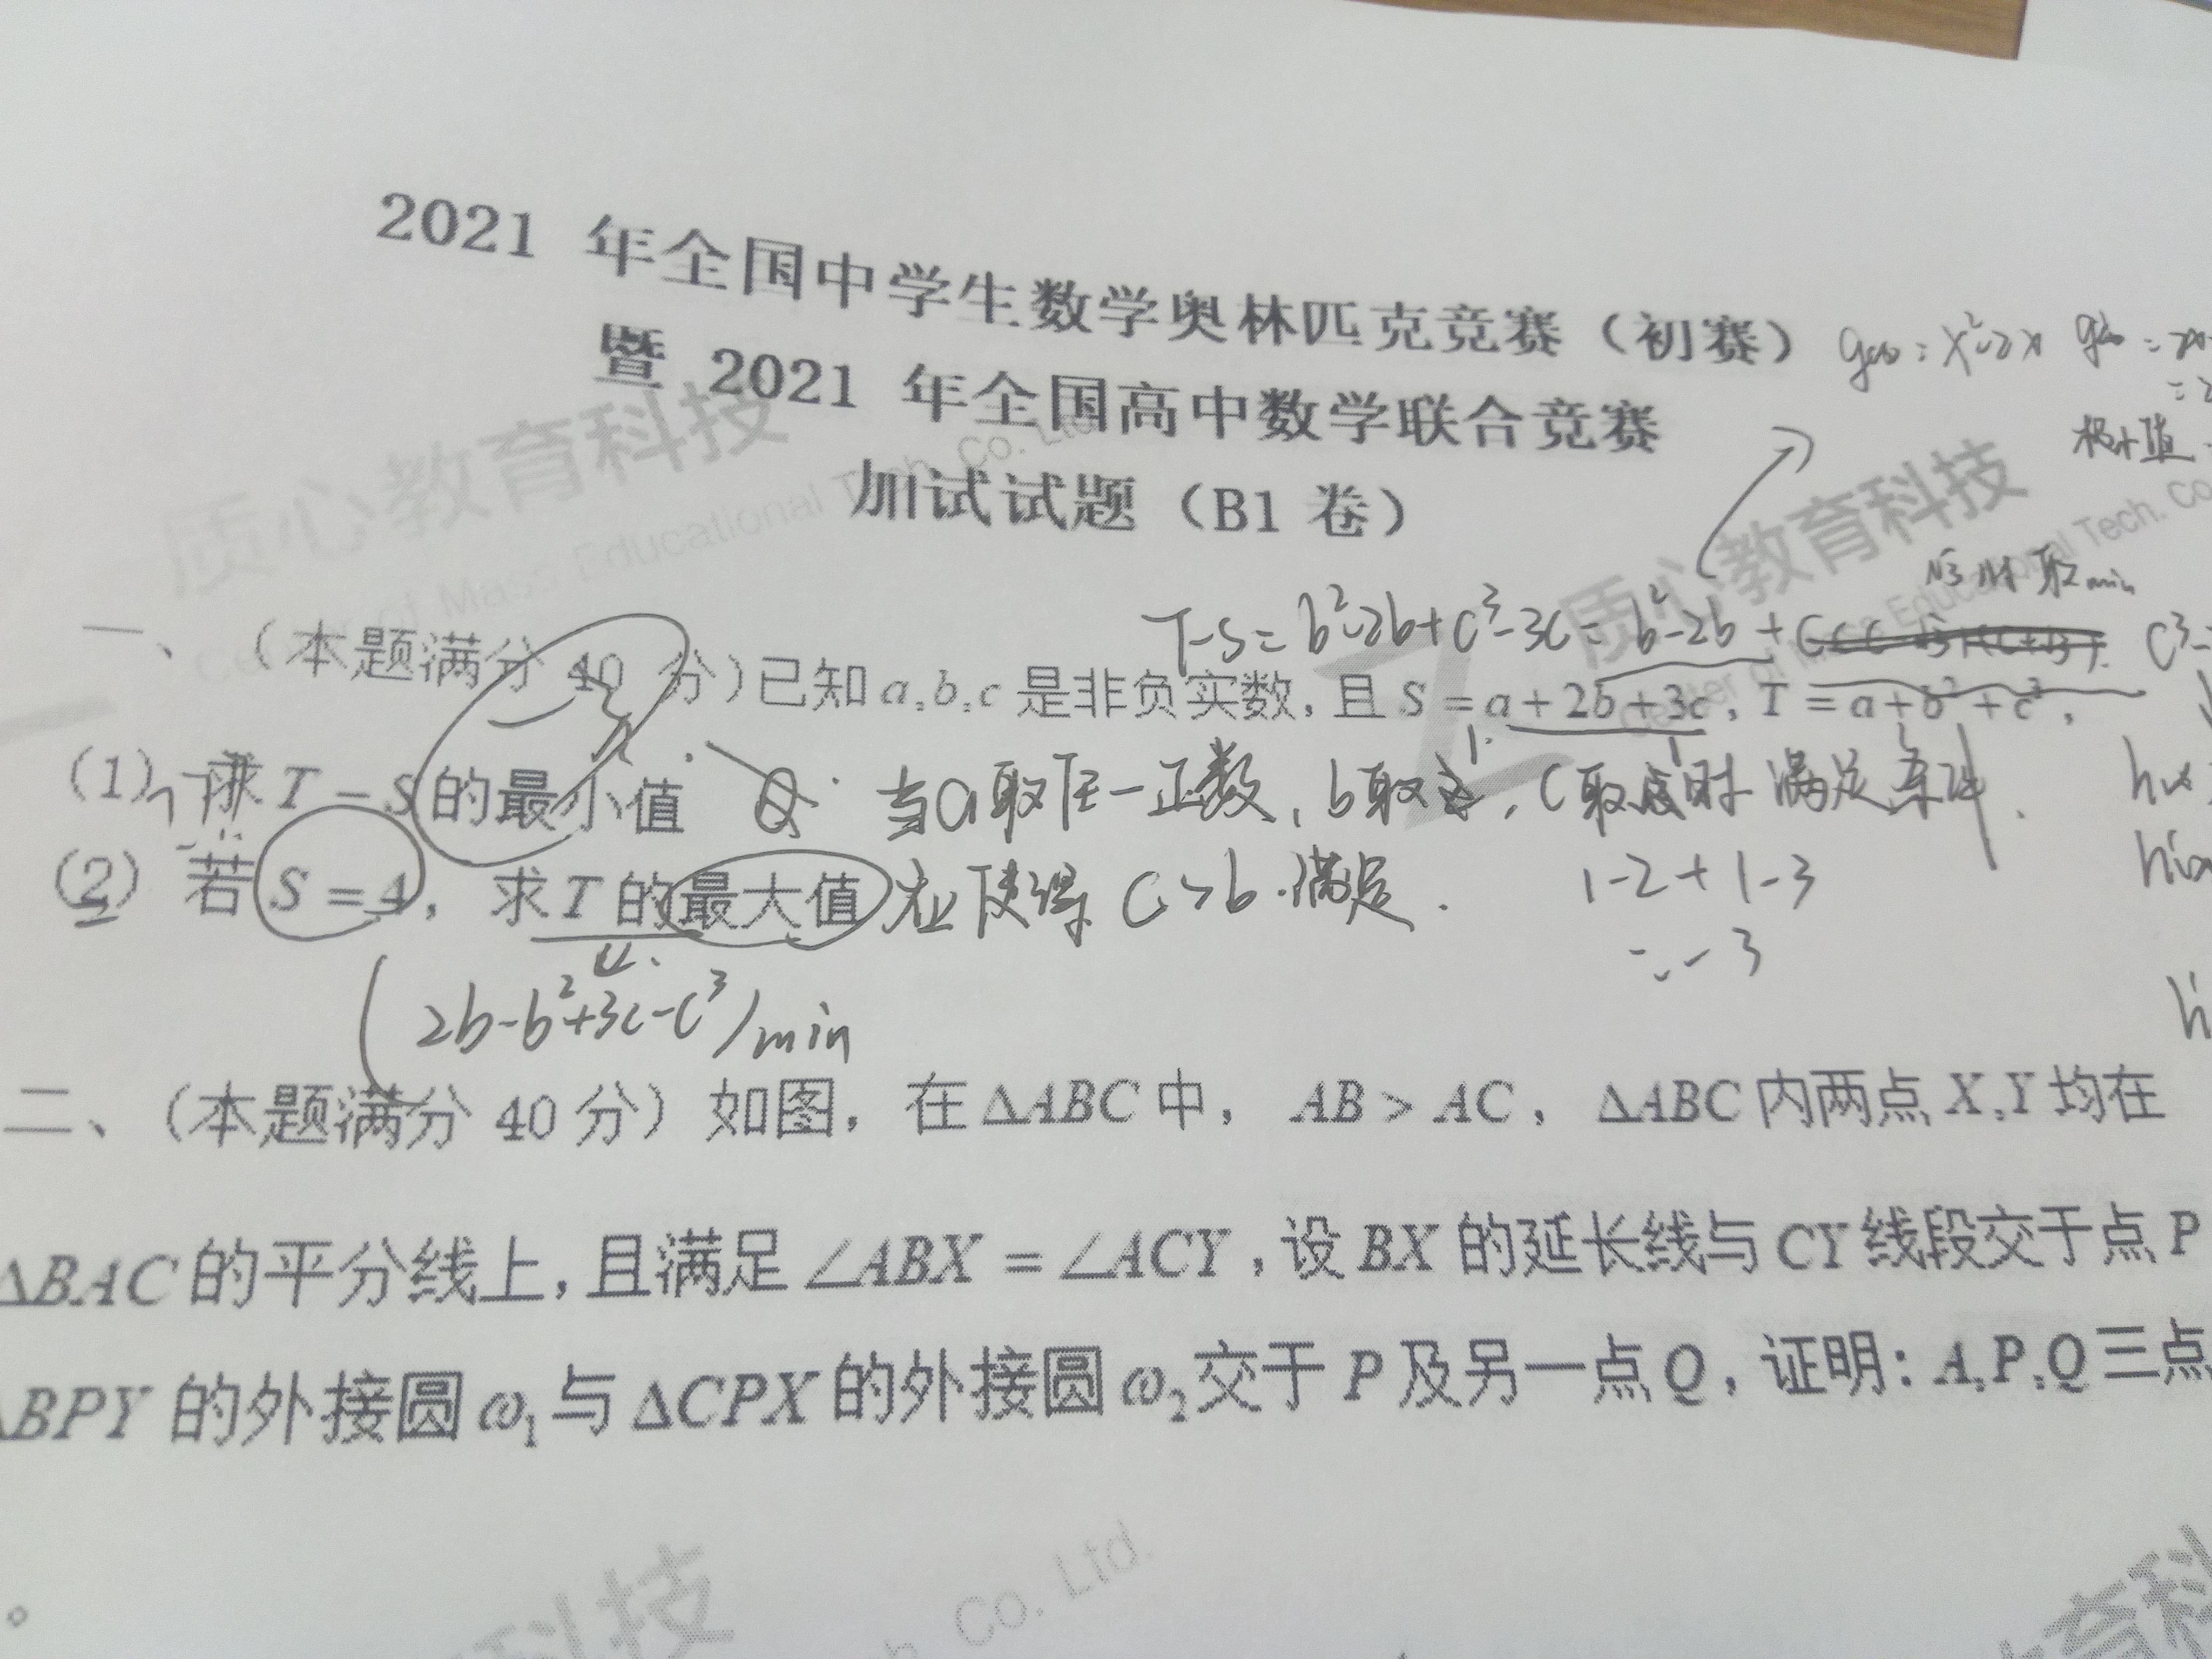 2021 年全国中学生数学奥林匹克竞赛（初赛）
暨 2021 年全国高中数学联合竞赛
加试试题（B1 卷）
质心教育科技
质心教育科技
极小值
T-S= b²-2b+c³-3c= b²-2b+
取min
一、（本题满分 40 分）已知 a,b,c 是非负实数，且 S = a + 2b + 3c，T = a + b² + c³，
(1) 求 T - S 的最小值
当a取任一正数，b取1，c取1时 满足条件.
(2) 若 S = 4，求 T 的最大值
使得 c>b 满足.
1-2+1-3
=-3
(2b-b²+3c-c³)min
二、（本题满分 40 分）如图，在 ΔABC 中， AB > AC ， ΔABC 内两点 X,Y 均在
ΔBAC 的平分线上，且满足 ∠ABX = ∠ACY，设 BX 的延长线与 CY 线段交于点 P
ΔBPY 的外接圆 ω₁ 与 ΔCPX 的外接圆 ω₂ 交于 P 及另一点 Q，证明：A,P,Q 三点
科技
Co. Ltd.
育科